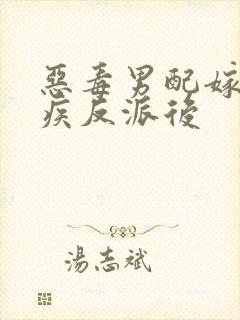 惡毒男配嫁
疾反派後
湯志斌